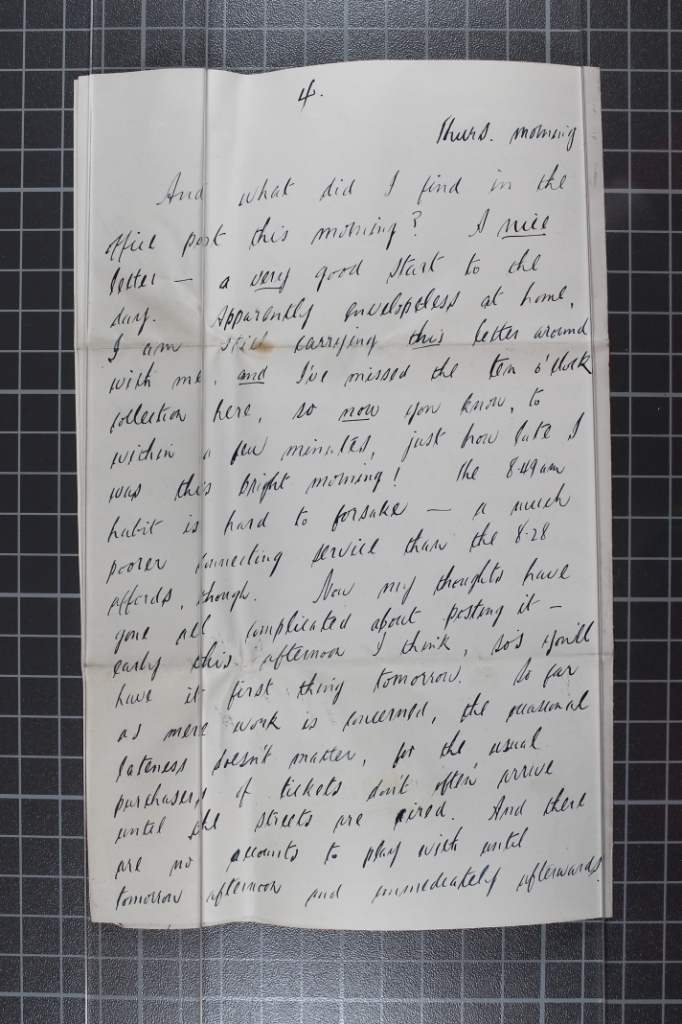 4.
Thurs. morning
And what did I find in the
office post this morning? A nice
letter — a very good start to the
day. Apparently envelopeless at home,
I am still carrying this letter around
with me, and I've missed the ten o'clock
collection here, so now you know, to
within a few minutes, just how late I
was this bright morning! The 8.49am
habit is hard to forsake — a much
poorer connecting service than the 8.28
affords, though. Now my thoughts have
gone all complicated about posting it —
early this afternoon I think, so's you'll
have it first thing tomorrow. So far
as mere work is concerned, the occasional
lateness doesn't matter, for the usual
purchasers of tickets don't often arrive
until the streets are aired. And there
are no accounts to play with until
tomorrow afternoon and immediately afterwards